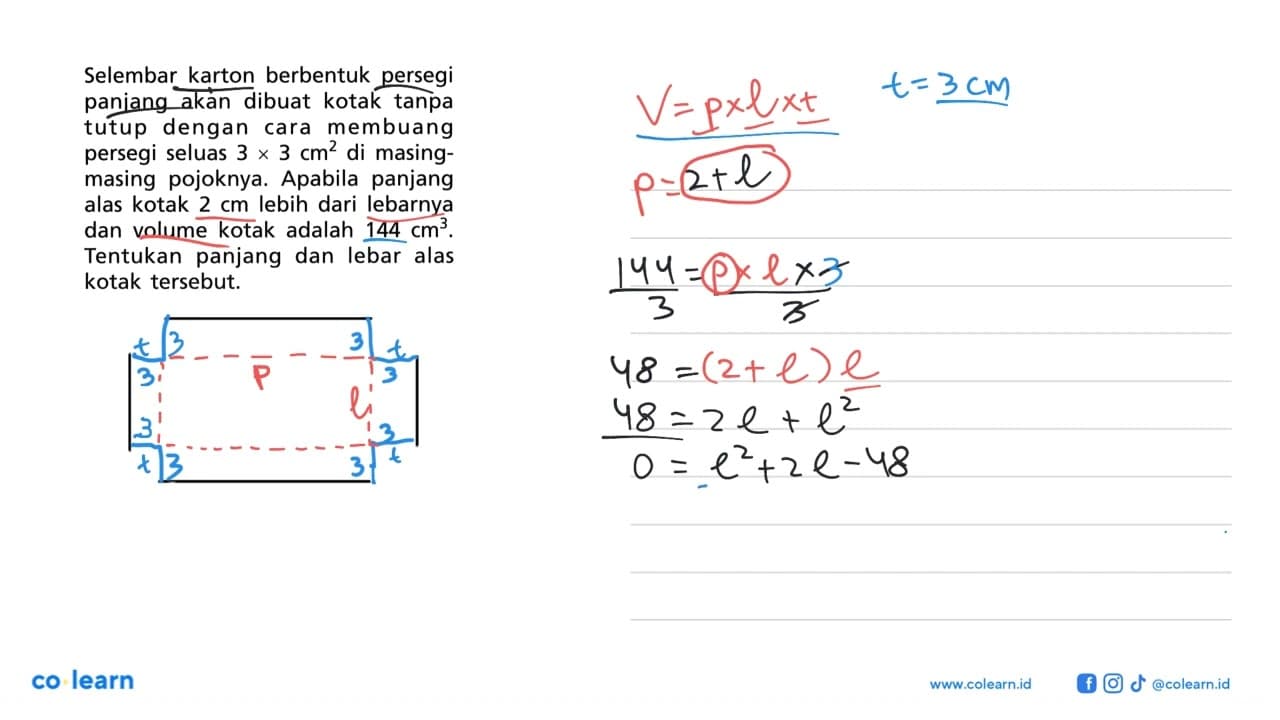 Selembar karton berbentuk persegi
panjang akan dibuat kotak tanpa
tutup dengan cara membuang
persegi seluas 3 × 3 cm² di masing-
masing pojoknya. Apabila panjang
alas kotak 2 cm lebih dari lebarnya
dan volume kotak adalah 144 cm³.
Tentukan panjang dan lebar alas
kotak tersebut.
t 3 3 t
3 P 3
l
3 3
t 3 3 t
V = p × l × t t = 3 cm
p = 2 + l
144 = p × l × 3
3 3
48 = (2 + l) l
48 = 2l + l²
0 = l² + 2l - 48
co learn
www.colearn.id @colearn.id